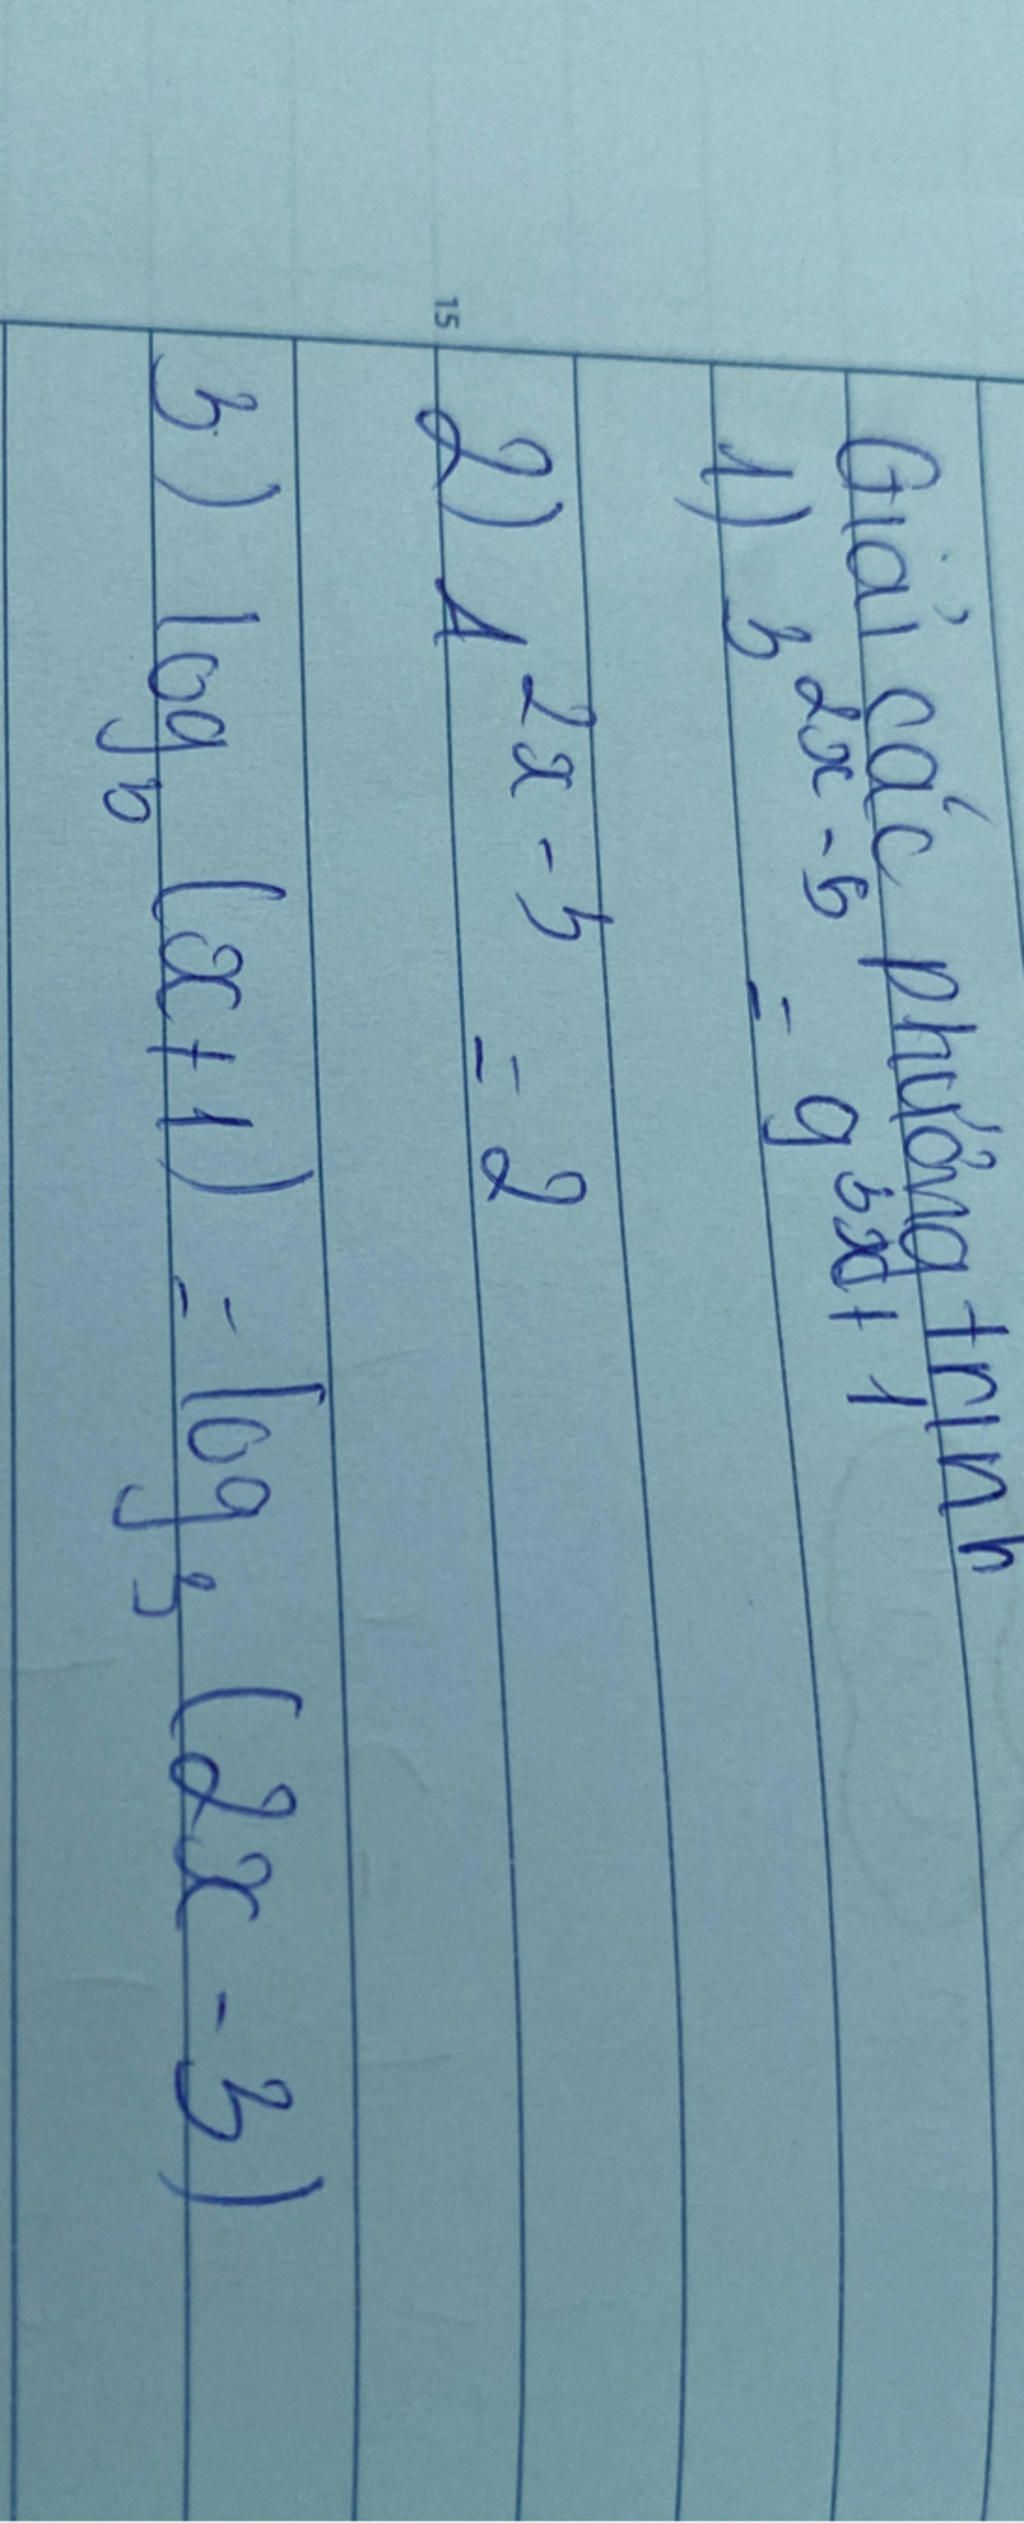 Giải các phương trình
1) 3^{2x-5} = 9^{3x+1}
15
2) 1^{2x-3} = 2
3) log_3 (x+1) = log_3 (2x-3)